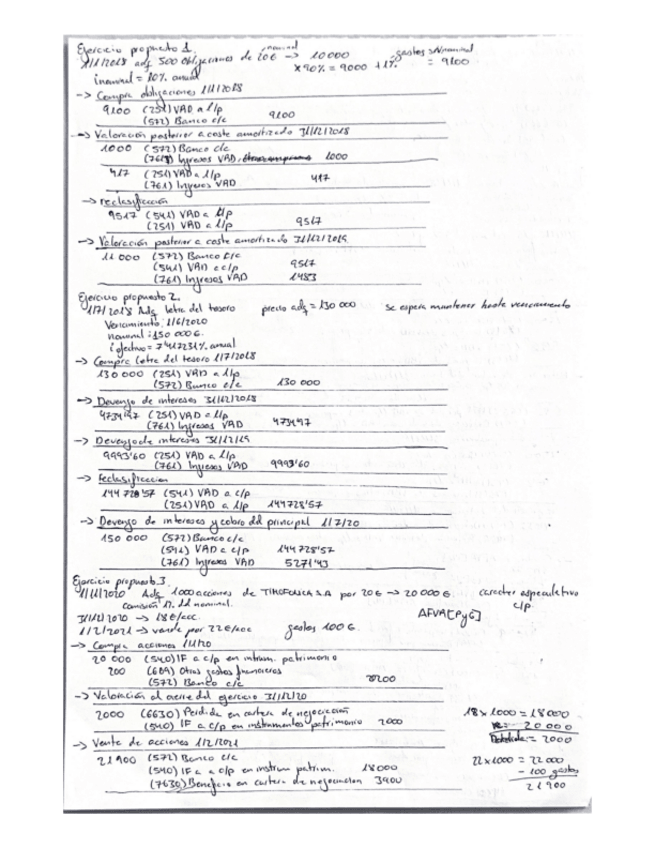 Ejercicio propuesto 1.
1/1/2018 adq 500 obligaciones de 20€ nominal → 10000 gastos s/Nominal
x 90% = 9000 + 1% = 9100
i nominal = 10% anual
→ Compra obligaciones 1/1/2018
9100 (251) VRD a l/p
(572) Banco c/c 9100
→ Valoración posterior a coste amortizado 31/12/2018
1000 (572) Banco c/c
(761) Ingresos VRD 1000
417 (251) VRD a l/p
(761) Ingresos VRD 417
→ reclasificación
9517 (541) VRD a l/p
(251) VRD a l/p 9517
→ Valoración posterior a coste amortizado 31/12/2019
11 000 (572) Banco c/c
(541) VRD a c/p 9517
(761) Ingresos VRD 1483
Ejercicio propuesto 2.
1/7/2018 Adq letra del tesoro precio adq = 130 000 se espera mantener hasta vencimiento
Vencimiento: 1/6/2020
nominal: 150 000€.
i efectivo = 7'417231% anual
→ Compra Letra del tesoro 1/7/2018
130 000 (251) VRD a l/p
(572) Banco c/c 130 000
→ Devengo de intereses 31/12/2018
4734'97 (251) VRD a l/p
(761) Ingresos VRD 4734'97
→ Devengo de intereses 31/12/19
9993'60 (251) VRD a l/p
(761) Ingresos VRD 9993'60
→ Reclasificacion
144 728'57 (541) VRD a c/p
(251) VRD a l/p 144728'57
→ Devengo de intereses y cobro del principal 1/7/20
150 000 (572) Banco c/c
(541) VRD a c/p 144728'57
(761) Ingresos VRD 5271'43
Ejercicio propuesto 3.
1/11/2020 Adq 1000 acciones de TIMOFONICA S.A por 20€ → 20 000€. caracter especulativo
comisión 1% del nominal. c/p.
31/12/2020 → 18€/acc. AFVR[PyG]
1/2/2021 → vende por 22€/acc gastos 100€.
→ Compra acciones 1/11/20
20 000 (540) IF a c/p en instrum. patrimonio
200 (669) Otros gastos financieros
(572) Banco c/c 20200
→ Valoración al cierre del ejercicio 31/12/20
2000 (6630) Perdida en cartera de negociación 18 x 1000 = 18000
(540) IF a c/p en instrumentos patrimonio 2000 20 000
= 2000
→ Venta de acciones 1/2/2021
21 900 (572) Banco c/c 22 x 1000 = 22 000
(540) IF a c/p en instrum patrim. 18000 - 100 gastos
(7630) Beneficio en cartera de negociacion 3900 21 900